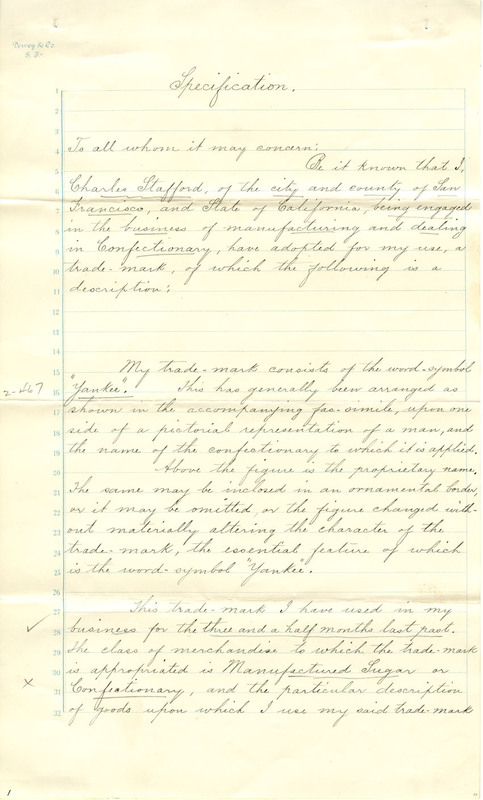 Dewey & Co.
S. F.
Specification.
1
2
3
4
5
6
7
8
9
10
11
12
13
14
15
16
17
18
19
20
21
22
23
24
25
26
27
28
29
30
31
32
To all whom it may concern:
Be it known that I,
Charles Stafford, of the city and county of San
Francisco, and State of California, being engaged
in the business of manufacturing and dealing
in Confectionary, have adopted for my use, a
trade-mark, of which the following is a
description:
My trade-mark consists of the word-symbol
"Yankee". This has generally been arranged as
shown in the accompanying fac-simile, upon one
side of a pictorial representation of a man, and
the name of the confectionary to which it is applied.
Above the figure is the proprietary name.
The same may be inclosed in an ornamental border,
or it may be omitted, or the figure changed with-
out materially altering the character of the
trade-mark, the essential feature of which
is the word-symbol "Yankee".
This trade-mark I have used in my
business for the three and a half months last past.
The class of merchandise to which the trade-mark
is appropriated is Manufactured Sugar or
Confectionary, and the particular description
of goods upon which I use my said trade-mark